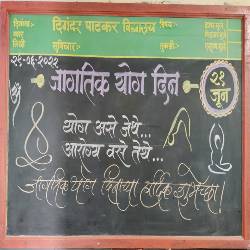 दिगंबर पाटकर विद्यालय
दिनांक:
वार
तिथी
सुविचार:
२१-०६-२०२२
जागतिक योग दिन
२१
जून
योग असे जेथे...
आरोग्य वसे तेथे...
जागतिक योग दिनाच्या हार्दिक शुभेच्छा!